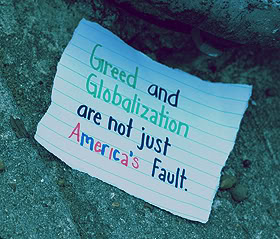 Greed and
Globalization
are not just
America's Fault.